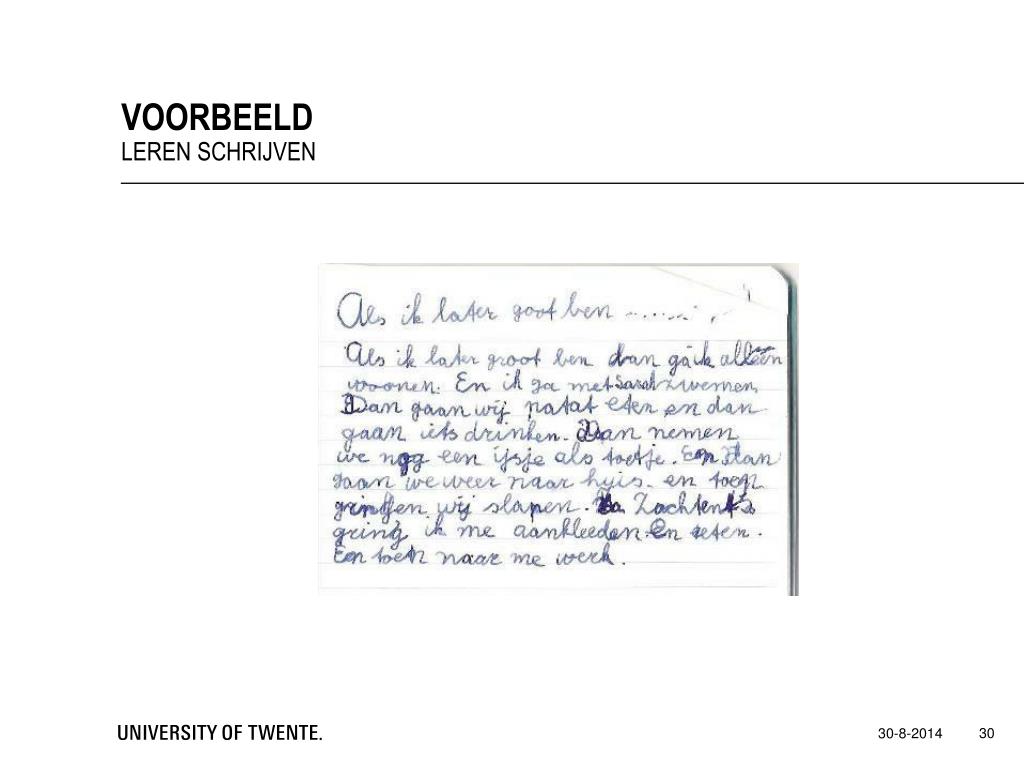 VOORBEELD
LEREN SCHRIJVEN
Als ik later goot ben ........
Als ik later groot ben dan ga ik alleen
woonen. En ik ga met Sarah zwemen,
Dan gaan wij patat eten en dan
gaan iets drinken. Dan nemen
we nog een ijsje als toetje. En dan
gaan we weer naar huis. en toen
gringen wij slapen. Zachtents
gring ik me aankleeden. En eten.
En toen naar me werk.
UNIVERSITY OF TWENTE.
30-8-2014 30